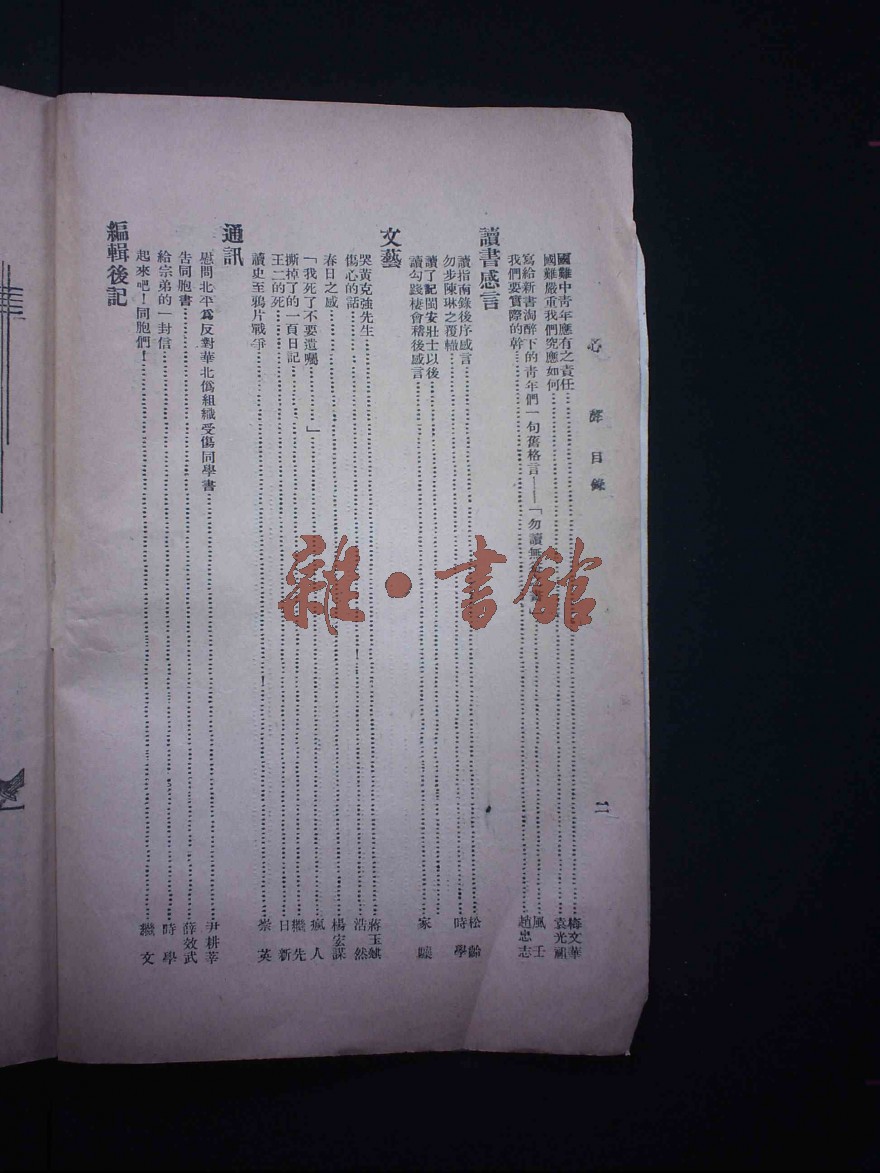 心聲目錄
二
國難中青年應有之責任……梅文華
國難嚴重我們究應如何……袁光
寫給新書淘醉下的青年們一句舊格言——「勿讀無……」……風壬
我們要實際的幹……趙忠志
讀書感言
讀指南錄後序感言……松齡
勿步陳琳之覆轍……時學
讀了記閩安壯士以後
讀勾踐棲會稽後感言……家驥
文藝
哭黃克強先生……蔣玉
傷心的話……浩然
春日之感……楊宏謀
「我死了不要遺囑……」……瘋人
撕掉了的一頁日記……繼先
王二的死……日新
讀史至鴉片戰爭……崇英
通訊
慰問北平為反對華北偽組織受傷同學書……尹耕莘
告同胞書……薛效武
給宗弟的一封信……時學
起來吧!同胞們!……繼文
編輯後記
雜·書館